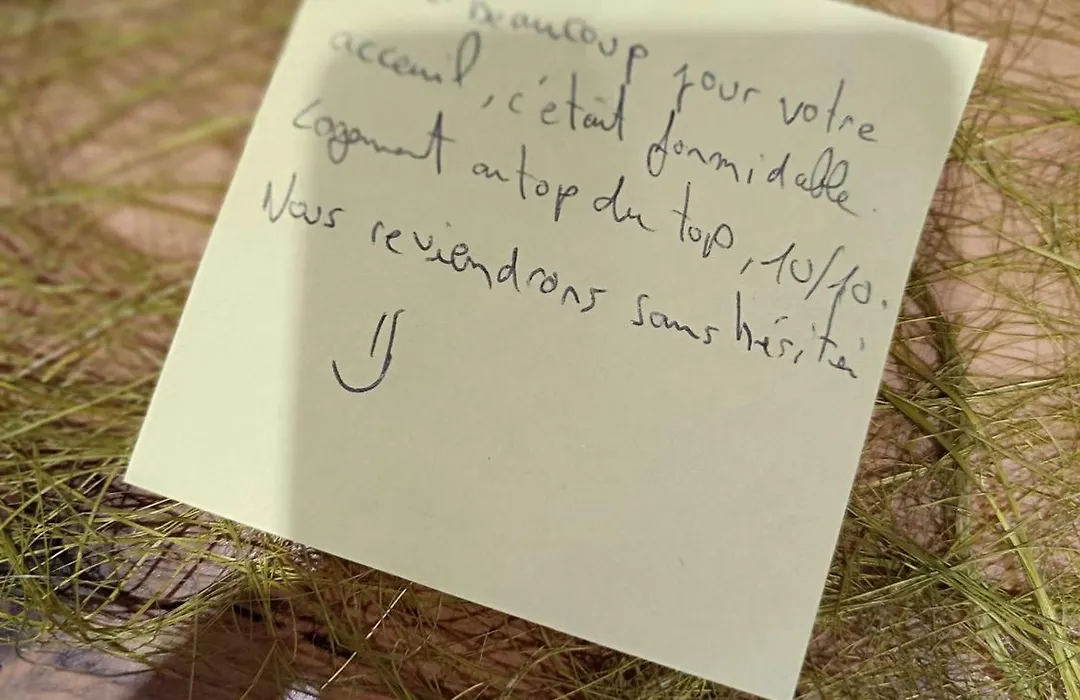 beaucoup pour votre
acceuil, c'était formidable.
Logement au top du top, 10/10.
Nous reviendrons sans hésiter